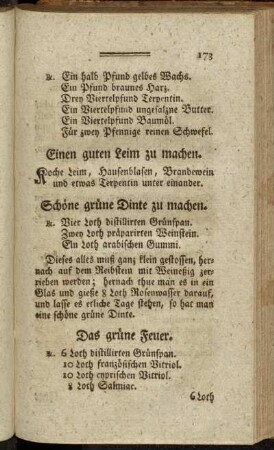 173
℞. Ein halb Pfund gelbes Wachs.
Ein Pfund braunes Harz.
Drey Viertelpfund Terpentin.
Ein Viertelpfund ungesalzne Butter.
Ein Viertelpfund Baumöl.
Für zwey Pfennige reinen Schwefel.
Einen guten Leim zu machen.
Koche Leim, Hausenblasen, Brandewein
und etwas Terpentin unter einander.
Schöne grüne Dinte zu machen.
℞. Vier Loth distillirten Grünspan.
Zwey Loth präparirten Weinstein.
Ein Loth arabischen Gummi.
Dieses alles muß ganz klein gestossen, her-
nach auf dem Reibstein mit Weineßig zer-
rieben werden; hernach thue man es in ein
Glas und gieße 8 Loth Rosenwasser darauf,
und lasse es etliche Tage stehen, so hat man
eine schöne grüne Dinte.
Das grüne Feuer.
℞. 6 Loth distillirten Grünspan.
10 Loth französischen Vitriol.
10 Loth cyprischen Vitriol.
8 Loth Salmiac.
6 Loth